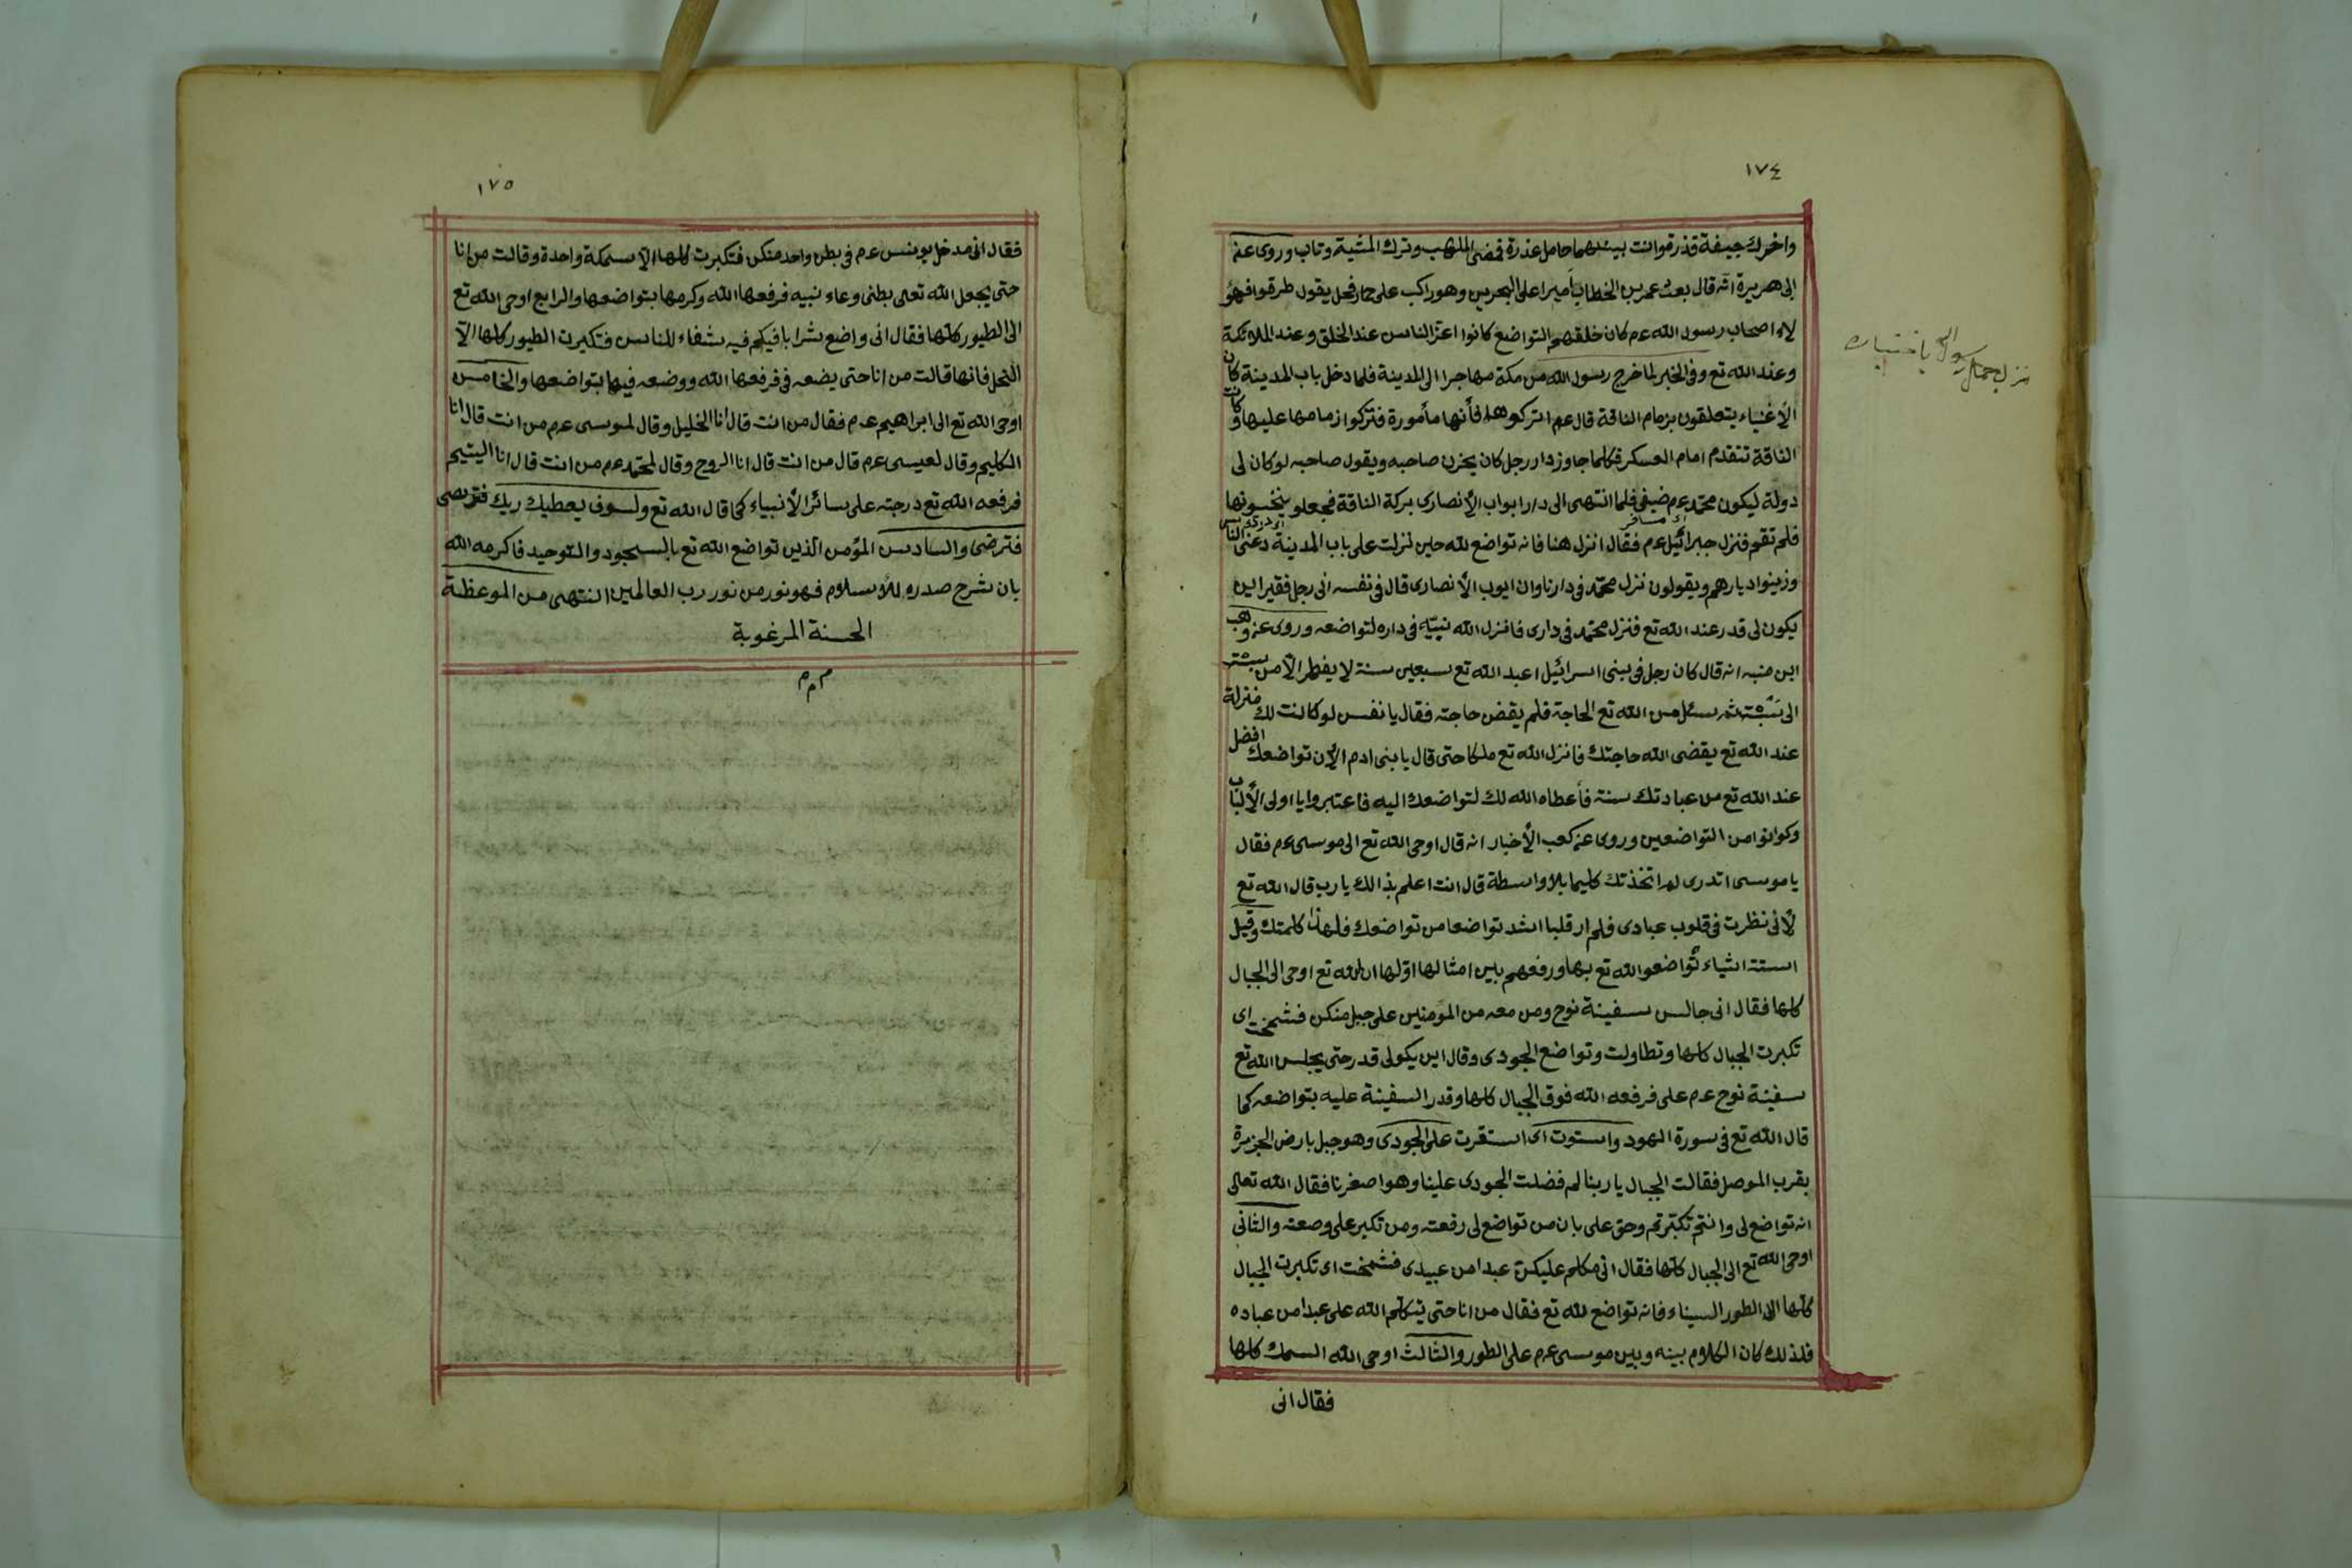 ١٧٤
واخرك جيفة قذرة وانت بينهما حامل عذرة فمضى المهلب وترك المشية وتاب وروى عن
ابى هريرة انه قال بعث عمر بن الخطاب اميرا على البحرين وهو راكب على حمار فجعل يقول طرقوا فهو
لاء اصحاب رسول الله عم كان خلقهم التواضع كانوا اعز الناس عند الخلق وعند الملائكة
وعند الله تع وفى الخبر لما خرج رسول الله من مكة مهاجرا الى المدينة فلما دخل باب المدينة كان
الأغنياء يتعلقون بزمام الناقة قال عم اتركوها فأنها مأمورة فتركوا زمامها عليها وكانت
الناقة تتقدم امام العسكر فكلما جاوز دار رجل كان يحزن صاحبه ويقول صاحبه لو كان لى
دولة ليكون محمد عم ضيفى فلما انتهى الى دار ابو اب الأنصارى بركة الناقة فجعلو ينخسونها
فلم تقم فنزل جبرائيل عم فقال انزل هنا فانه تواضع لله حين نزلت على باب المدينة
وزينوا ديارهم ويقولون نزل محمد فى دارنا وان ايوب الأنصارى قال فى نفسه انى رجل فقير اين
يكون لى قدر عند الله تع فنزل محمد فى دارى فانزل الله نبيه فى داره لتواضعه وروى عن وهب
ابن منبه انه قال كان رجل فى بينى اسرائيل اعبد الله تع سبعين سنة لا يفطر الا من
الى ثم سئل من الله تع الحاجة فلم يقض حاجته فقال يا نفس لو كانت لك منزلة
عند الله تع يقضى الله حاجتك فانزل الله تع ملكا حتى قال يا بنى ادم الآن تواضعك افضل
عند الله تع من عبادتك سنة فأعطاه الله لك لتواضعك اليه فاعتبروا يا اولى الألباب
وكونوا من التواضعين وروى عن كعب الأخبار انه قال اوحى الله تع الى موسى عم فقال
يا موسى اتدرى لم اتخذتك كليما بلا واسطة قال انت اعلم بذالك يا رب قال الله تع
لأنى نظرت فى قلوب عبادى فلم ار قلبا اشد تواضعا من تواضعك فلهذا كلمتك وقيل
الستة اشياء تواضعوا لله تع بها ورفعهم بين امثالها اولها ان الله تع اوحى الى الجبال
كلها فقال انى جالس سفينة نوح ومن معه من المؤمنين على جبل منكن فشمخت اى
تكبرت الجبال كلها وتطاولت وتواضع الجودى وقال اين يكولى قدر حتى يجلس الله تع
سفينة نوح عم على فرفعه الله فوق الجبال كلها وقدر السفينة عليه بتواضعه كما
قال الله تع فى سورة الهود واستوت اى استقرت على الجودى وهو جبل بارض الجزيرة
بقرب الموصل فقالت الجبال يا ربنا لم فضلت الجودى علينا وهو اصغرنا فقال الله تعالى
انه تواضع لى وانتم تكبرتم وحق على بان من تواضع لى رفعته ومن تكبر على وضعته والثانى
اوحى الله تع الى الجبال كلها فقال انى مكلم عليكن عبدا من عبيدى فشمخت اى تكبرت الجبال
كلها الا الطور السيناء فانه تواضع لله تع فقال من انا حتى يتكلم الله على عبدا من عباده
فلذلك كان الكلام بينه وبين موسى عم على الطور والثالث اوحى الله السمك كلها
فقال انى
١٧٥
فقال انى مدخل يونس عم فى بطن واحد منكن فتكبرت كلها الا سمكة واحدة وقالت من انا
حتى يجعل الله تعالى بطنى وعاء نبيه فرفعها الله وكرمها بتواضعها والرابع اوحى الله تع
الى الطيور كلها فقال انى واضع شرابا فيكم فيه شفاء للناس فتكبرت الطيور كلها الا
النحل فانها قالت من انا حتى يضعه فى فرفعها الله ووضعه فيها بتواضعها والخامس
اوحى الله تع الى ابراهيم عم فقال من انت قال انا الخليل وقال لموسى عم من انت قال انا
الكليم وقال لعيسى عم قال من انت قال انا الروح وقال لمحمد عم من انت قال انا اليتيم
فرفعه الله تع درجته على سائر الأنبياء كما قال الله تع ولسوف يعطيك ربك فترضى
فترضى والسادس المؤمن الذين تواضع الله تع بالسجود والتوحيد فاكرمه الله
بان شرح صدره للأسلام فهو نور من نور رب العالمين انتهى من الموعظة
الحسنة المرغوبة
م م م